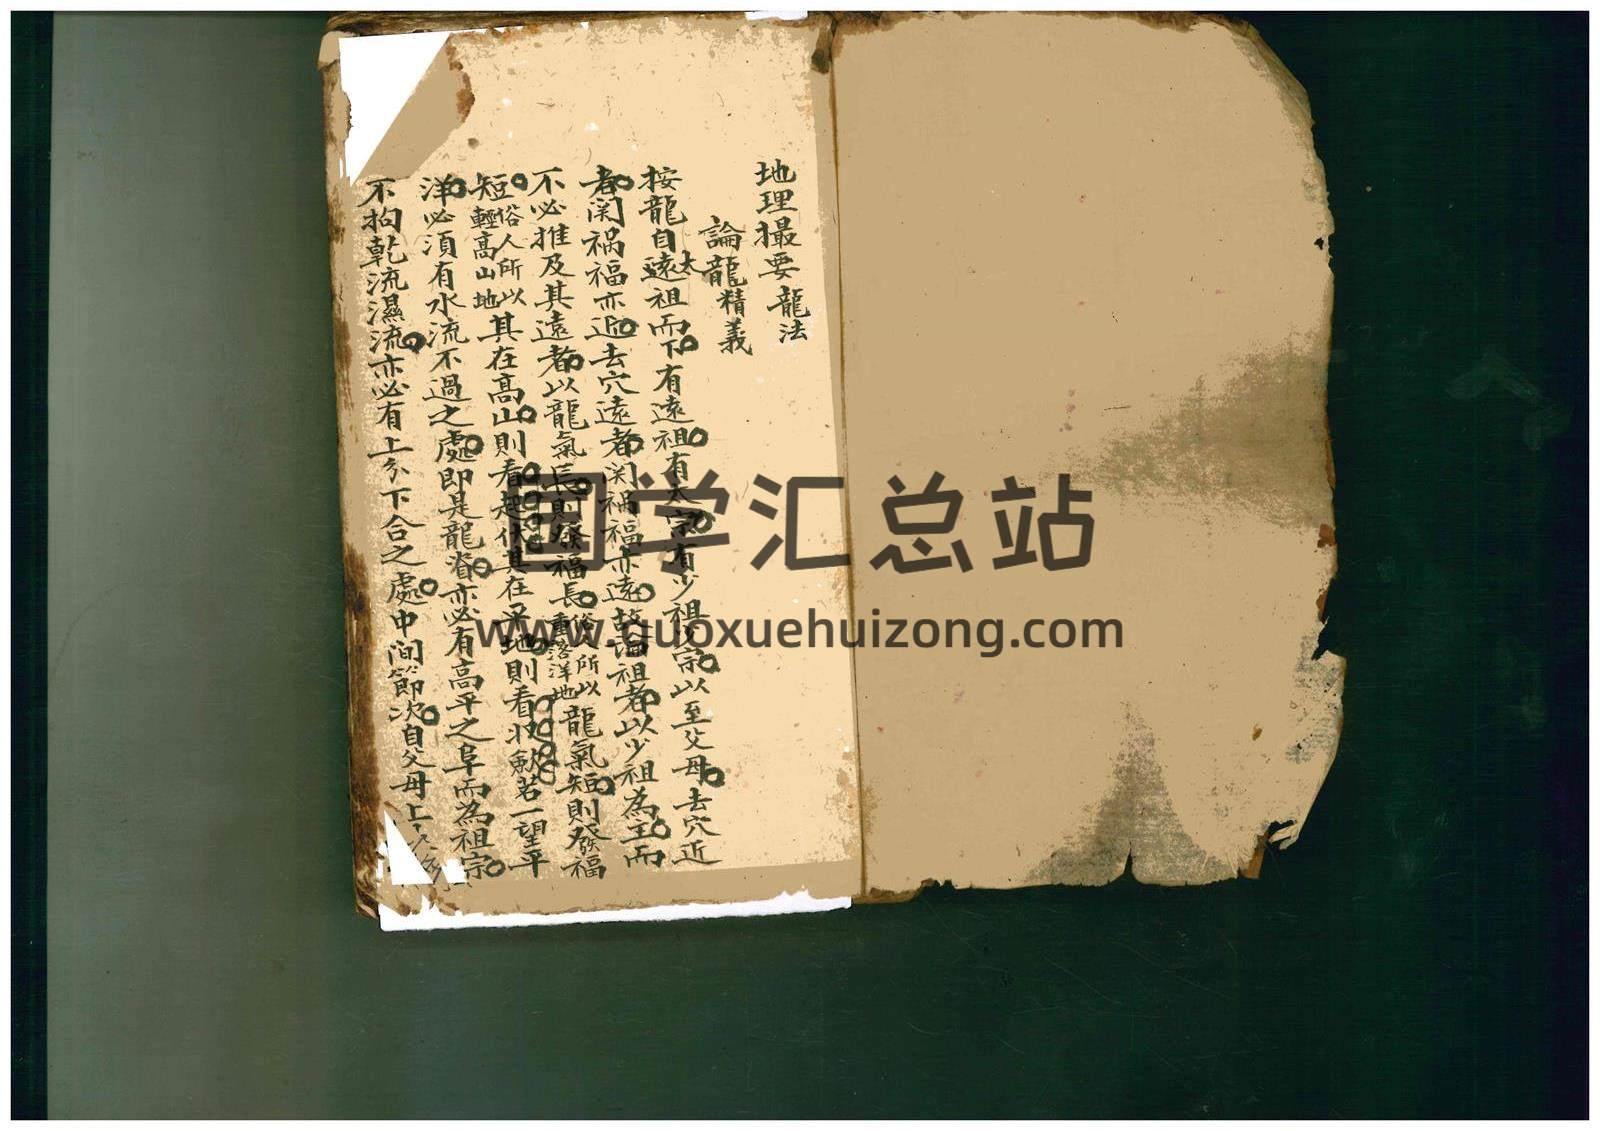 地理撮要 龍法
論龍精義
按龍自遠太祖而下有遠祖有太宗有少祖宗以至父母去穴近
者関禍福亦近去穴遠者関禍福亦遠故論祖者以少祖為主而
不必推及其遠者以龍氣長則發福長俗所以重落洋地龍氣短則發福
短俗人所以輕高山地其在高山則看起伏其在平地則看 一望平
洋必須有水流不過之處即是龍脊亦必有高平之阜而為祖宗
不拘乾流濕流亦必有上分下合之處中間節次自父母上
国学汇总站
www.guoxuehuizong.com